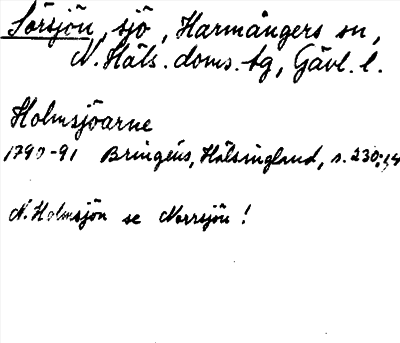 Sörsjön, sjö, Harmångers sn,
N. Häls. doms. tg, Gävl. l.
Holmsjöarne
1790-91 Bringéus, Hälsingland, s. 230:14
N. Holmsjön se Norrsjön!